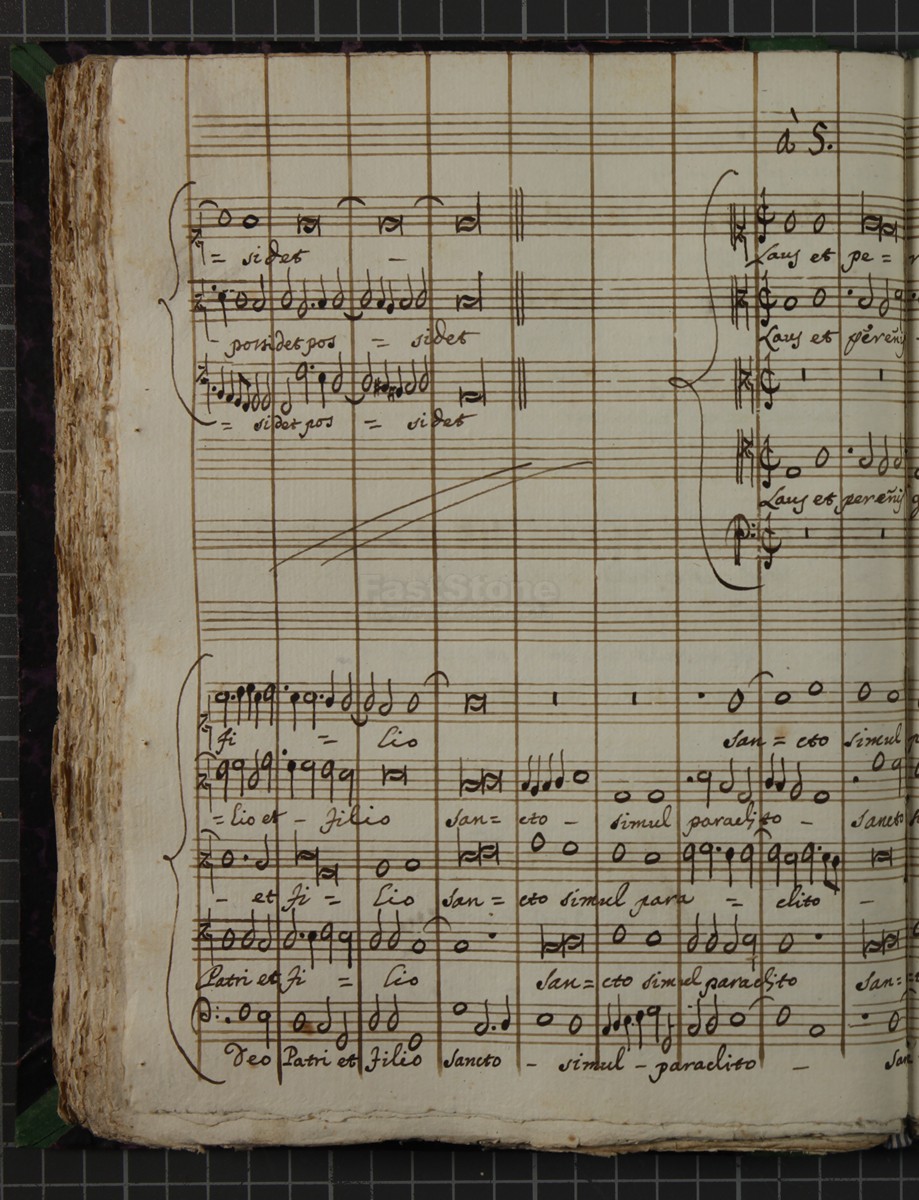 à 5.
= sidet -
Laus et pe =
- possidet pos = sidet
Laus et pereñis
= sidet pos = sidet
Laus et pereñis
FastStone
Fi = lio San = cto simul
= lio et - Filio San = cto - simul paraclito - Sancto
- et Fi = lio San = cto simul para = clito -
Patri et Fi = lio San = cto simul paraclito San =
Deo Patri et Filio Sancto - simul - paraclito - San